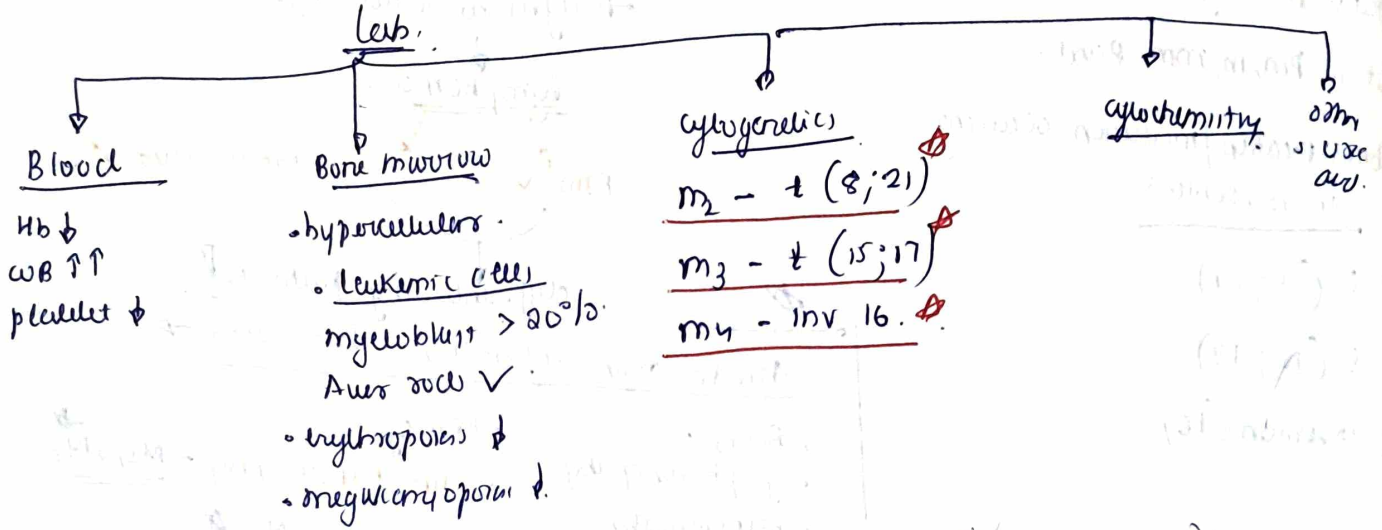 Lab.
Blood
Hb ↓
WB ↑↑
platelet ↓
Bone marrow
• hypercellular.
• Leukemic cells
myeloblast > 20%.
Auer rods ✓
• erythropoiesis ↓
• megakaryopoiesis ↓.
cytogenetics
m2 - t (8;21)
m3 - t (15;17)
m4 - inv 16.
cytochemistry.